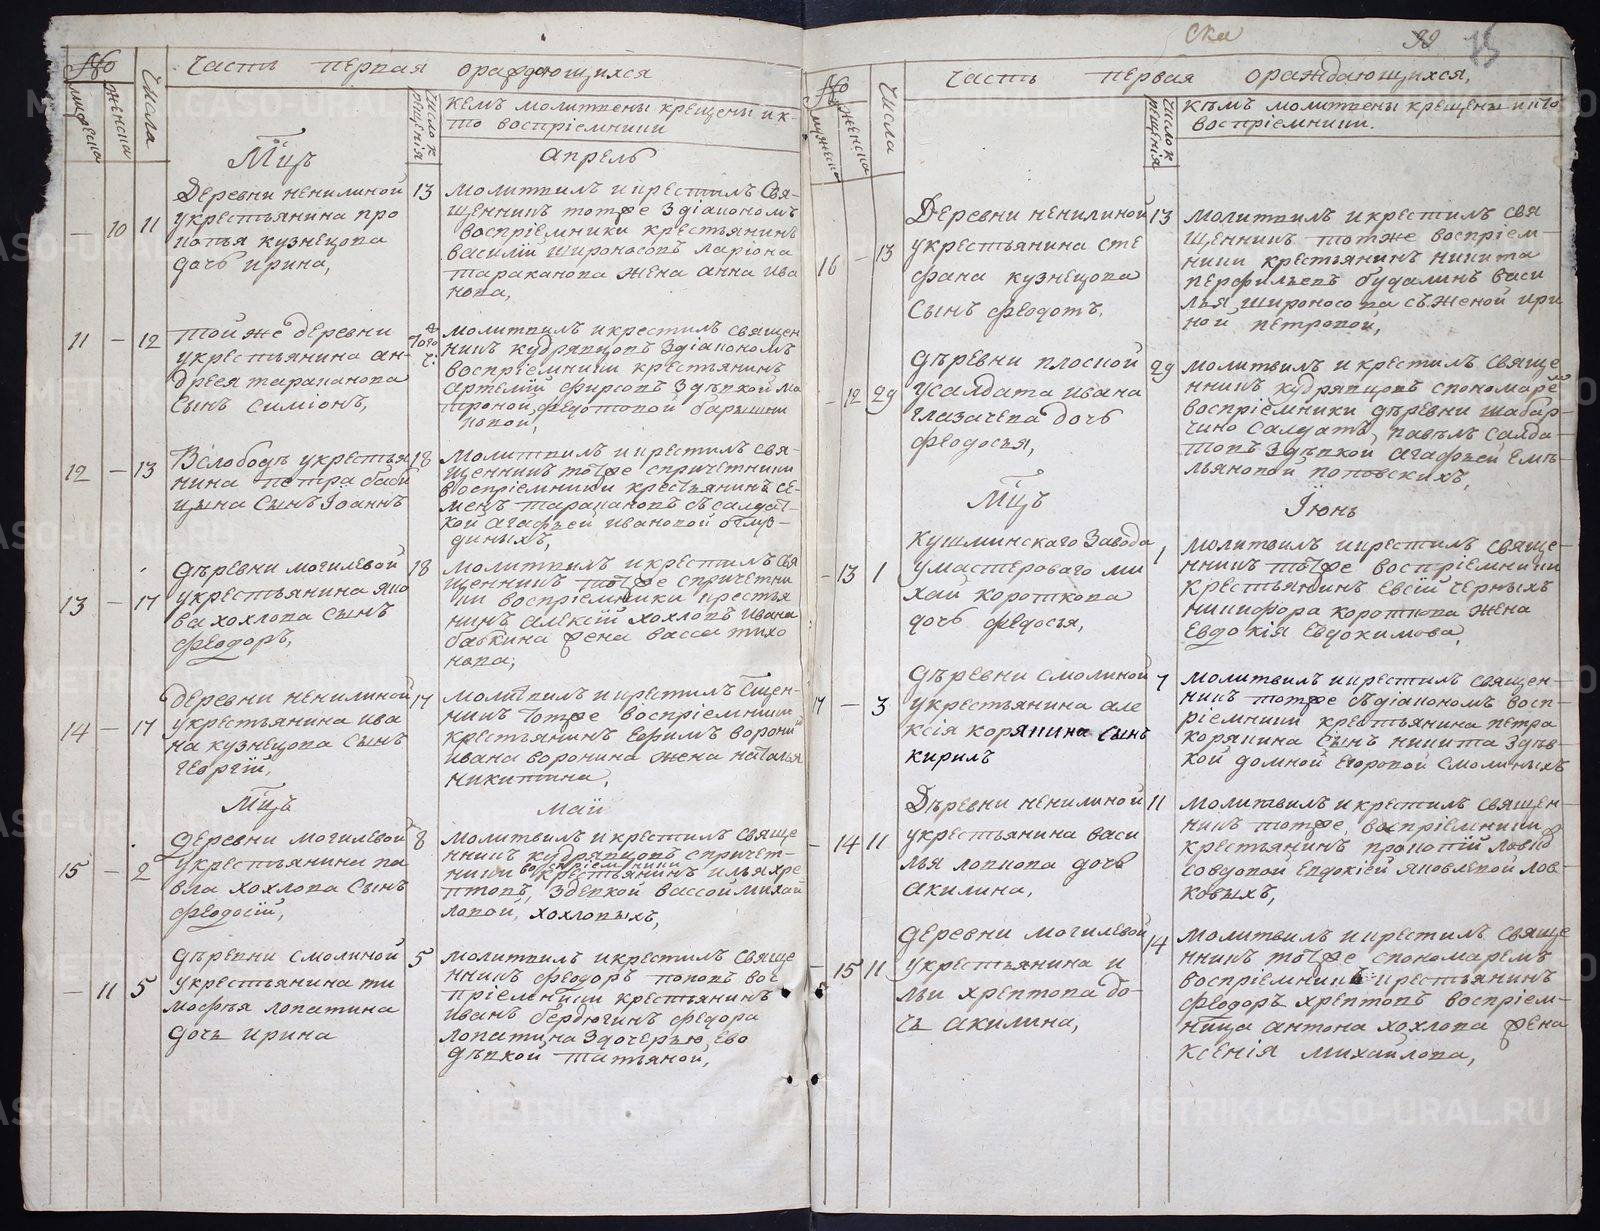 Часть первая ораждающихся
№
мужеска
женска
Числа
число крещенія
кемъ молитвены крещены и к-
то воспріемники
Мцъ
Апрель
10 11
Деревни ненилиной
укрестьянина про
копья кузнецова
дочь ирина,
13
молитвилъ и крестилъ свя-
щенникъ тотже здіакономъ
воспріемники крестьянинъ
василій широносовъ ларіона
тараканова жена анна ива
нова,
11 – 12
тойже деревни
укрестьянина ан-
дрея тараканова
сынъ симіонъ,
того
молитвилъ и крестилъ священ
никъ кудрявцовъ здіакономъ
воспріемники крестьянинъ
артемій фирсовъ здѣвкой ма
троной федотовой барышни
ковой,
12 – 13
Вслободѣ укрестья
нина петра баби
цына сынъ Іоаннъ
18
молитвилъ и крестилъ свя-
щенникъ тотже спричетники
воспріемники крестьянинъ се-
менъ таракановъ съ салдат-
кой агафьей ивановой
13 – 17
дѣревни могилевой
укрестьянина яко
ва хохлова сынъ
феодоръ,
18
молитвилъ и крестилъ свя
щенникъ тотже спричетни
ки воспріемники крестья
нинъ алексій хохловъ ивана
бабкина жена васса тихо
нова,
14 – 17
деревни ненилиной
укрестьянина ива
на кузнецова сынъ
георгій,
17
молитвилъ и крестилъ Сщен-
никъ тотже воспріемники
крестьянинъ ефимъ воронин
ивана воронина жена наталья
никитина,
Мцъ
май
15 – 2
деревни могилевой
укрестьянина па
вла хохлова сынъ
феодосій,
8
молитвилъ и крестилъ свяще
нникъ кудрявцовъ спричет-
ники воспріемники крестьянинъ илья хре
птовъ, здевкой вассой михай
ловой, хохловыхъ,
– 11 5
дѣревни смолиной
укрестьянина ти
мофѣя лопатина
дочь ирина
5
молитвилъ и крестилъ свяще
нникъ феодоръ поповъ вос
пріемники крестьянинъ
иванъ бердюгинъ федора
лопатина здочерью ево
дѣвкой татьяной,
Ска
99 15
Часть первая ораждающихся,
№
мужеска
женска
Числа
число крещенія
кѣмъ молитвены крещены и кто
воспріемники.
16 – 13
Деревни ненилиной
укрестьянина сте
фана кузнецова
Сынъ феодотъ.
13
молитвилъ и крестилъ свя
щенникъ тотже воспріем-
ники крестьянинъ никита
перфильевъ будалинъ васи
лья широносова съ женой ири
ной петровой,
– 12 29
дѣревни плоской
усалдата ивана
глазачева дочь
феодосья,
29
молитвилъ и крестилъ свяще
нникъ кудрявцовъ спономарем
воспріемники дѣревни шабар-
чино салдатъ павѣлъ салда
товъ здѣвкой агафьей емѣ-
льяновой поповскихъ,
Мцъ
Іюнь
– 13 1
кушминскаго завода
умастероваго ми
хай короткова
дочь федосья,
1
молитвилъ и крестилъ свяще-
нникъ тотже воспріемники
крестьянинъ евсій черныхъ
никифора короткова жена
евдокія евдокимова,
17 – 3
дѣревни смолиной
укрестьянина але
ксія корякина сынъ
кирилъ
7
молитвилъ и крестилъ священ-
никъ тотже съдіакономъ восп-
ріемники крестьянина петра
корякина сынъ никита здѣв-
кой домной егоровой смолиныхъ
– 14 11
Дѣревни ненилиной
укрестьянина васи
лья ловкова дочь
акилина,
11
молитвилъ и крестилъ священ-
никъ тотже, воспріемники
крестьянинъ прокопій ловко
совдовой евдокіей яковлевой лов-
ковыхъ,
– 15 11
деревни могилевой
укрестьянина и
льи хрептова до-
чь акилина,
14
молитвилъ и крестилъ свяще
нникъ тотже спономаремъ
воспріемникъ крестьянинъ
феодоръ хрептовъ воспріем-
ница антона хохлова жена
ксенія михайлова,
METRIKI.GASO-URAL.RU